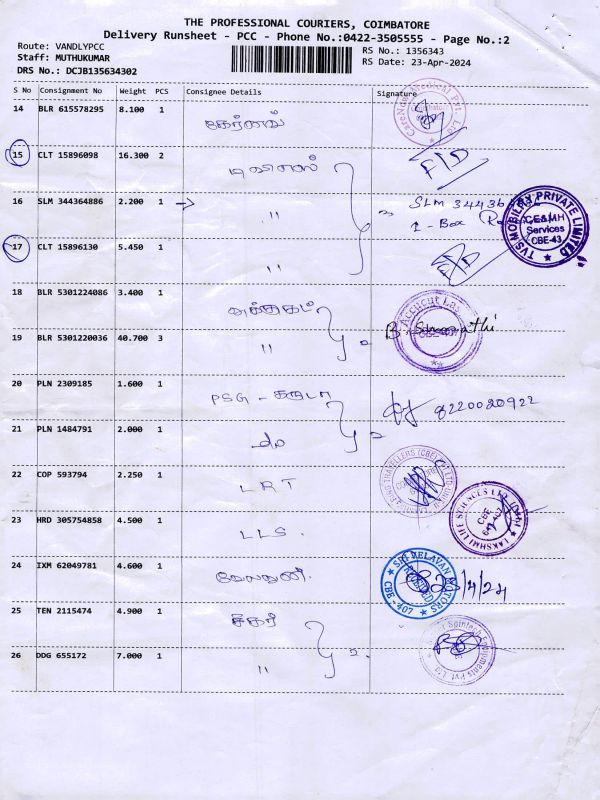 THE PROFESSIONAL COURIERS, COIMBATORE
Delivery Runsheet - PCC - Phone No.:0422-3505555 - Page No.:2
Route: VANDLYPCC
RS No.: 1356343
Staff: MUTHUKUMAR
RS Date: 23-Apr-2024
DRS No.: DCJB135634302
S No Consignment No Weight PCS Consignee Details Signature
14 BLR 615578295 8.100 1
15 CLT 15896098 16.300 2
16 SLM 344364886 2.200 1
"
1 - Box
TVS MOBILITY PRIVATE LIMITED
CE&MH Services CBE-43
17 CLT 15896130 5.450 1
"
18 BLR 5301224086 3.400 1
19 BLR 5301220036 40.700 3
"
20 PLN 2309185 1.600 1
PSG -
8220020922
21 PLN 1484791 2.000 1
do
22 COP 593794 2.250 1
LRT
23 HRD 305754858 4.500 1
LLS.
LAKSHMI LIFE SCIENCES
24 IXM 62049781 4.600 1
SRI VELAVAN MOTORS
CBE-407
23/4/24
25 TEN 2115474 4.900 1
26 DDG 655172 7.000 1
"